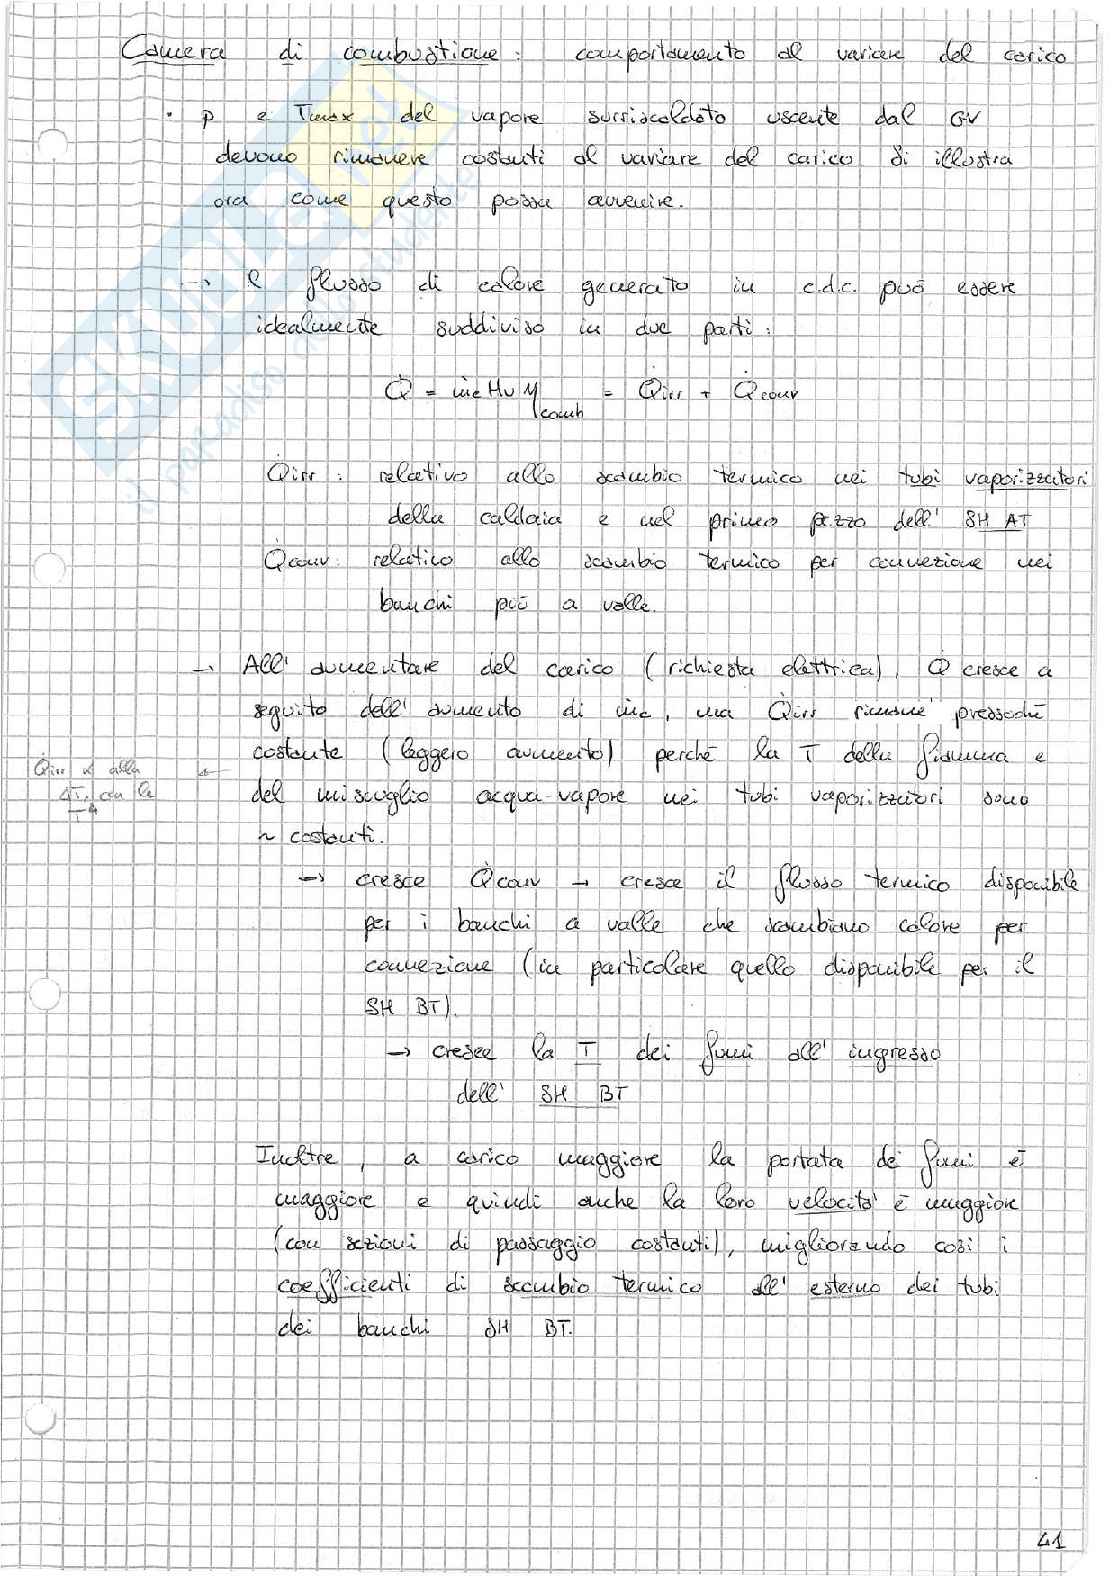 Camera di combustione: comportamento al variare del carico
• p e Tmax del vapore surriscaldato uscente dal GV
devono rimanere costanti al variare del carico Si illustra
ora come questo possa avvenire.
→ Il flusso di calore generato in c.d.c. può essere
idealmente suddiviso in due parti:
Q̇ = ṁc Hv ηcomb = Q̇irr + Q̇conv
Q̇irr: relativo allo scambio termico nei tubi vaporizzatori
della caldaia e nel primo pezzo dell' SH AT
Q̇conv: relativo allo scambio termico per convezione nei
banchi più a valle.
→ All' aumentare del carico (richiesta elettrica), Q̇ cresce a
seguito dell' aumento di ṁc, ma Q̇irr rimane pressoché
costante (leggero aumento) perché la T della fiamma e
del miscuglio acqua-vapore nei tubi vaporizzatori sono
~ costanti.
Q̇irr ∝ alla
ΔT, con la
T⁴
→ cresce Q̇conv → cresce il flusso termico disponibile
per i banchi a valle che scambiano calore per
convezione (in particolare quello disponibile per il
SH BT).
→ cresce la T dei fumi all' ingresso
dell' SH BT
Inoltre, a carico maggiore la portata dei fumi è
maggiore e quindi anche la loro velocità è maggiore
(con sezioni di passaggio costanti), migliorando così i
coefficienti di scambio termico all' esterno dei tubi
dei banchi SH BT.
41